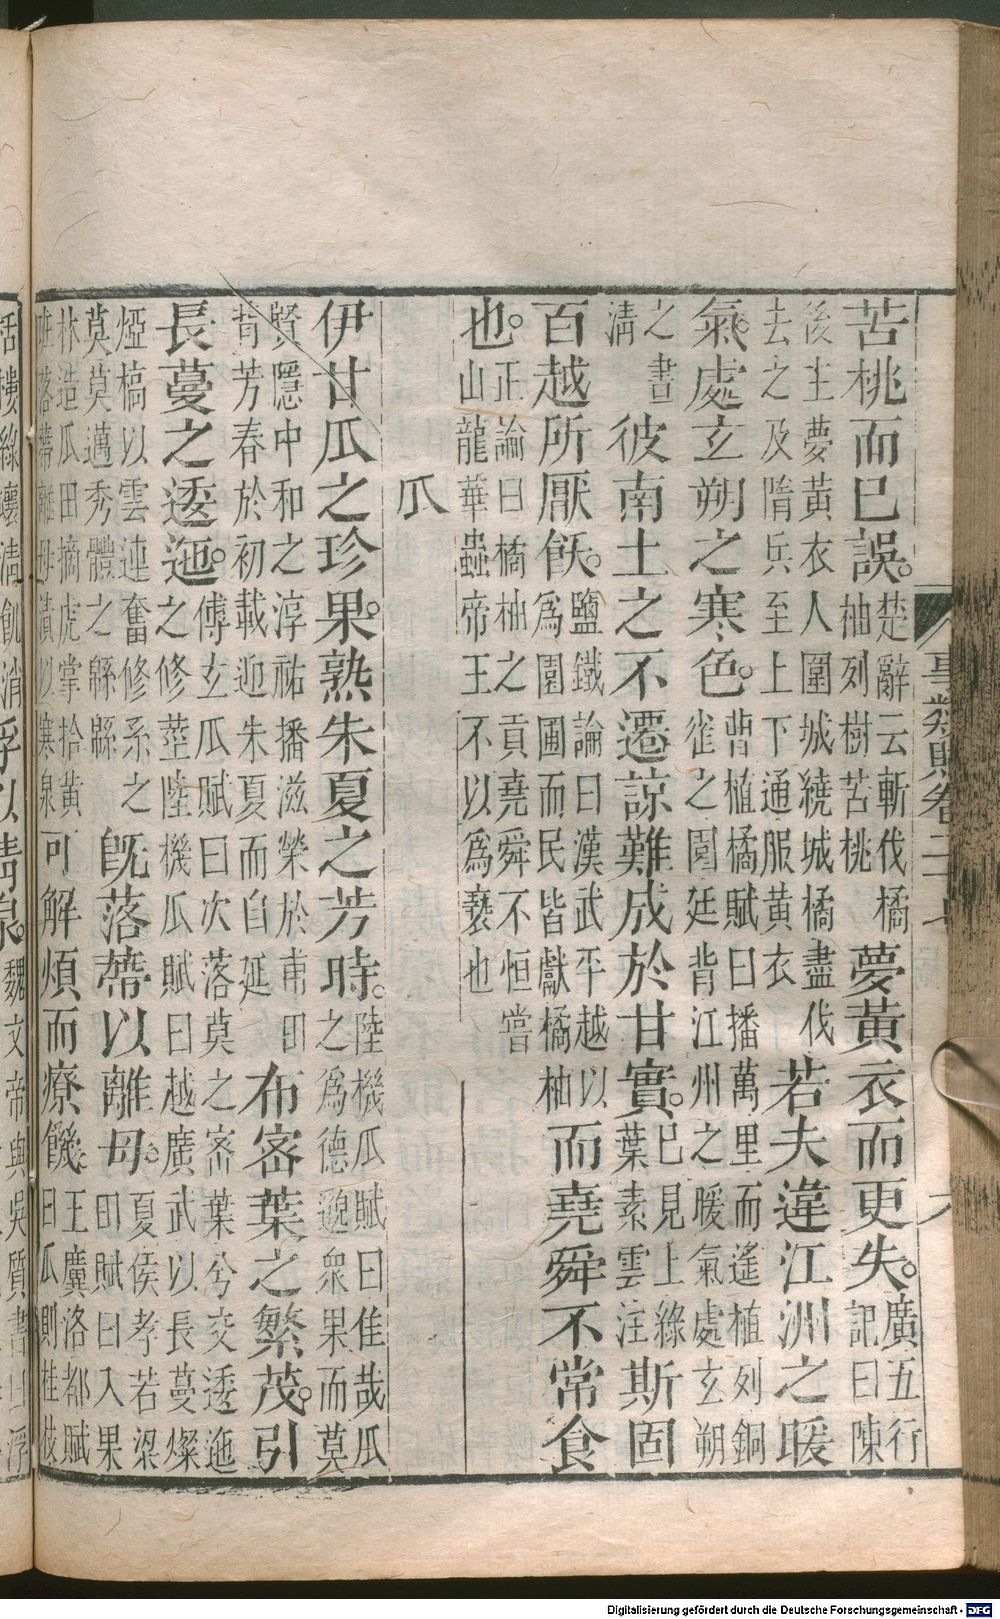 事類賦卷二十七 六
苦桃而已誤。楚辭云斬伐橘柚列樹苦桃夢黃衣而更失。廣五行記曰陳
後主夢黃衣人圍城繞城橘盡伐去之及隋兵至上下通服黃衣若夫違江洲之暖
氣。處玄朔之寒色。曹植橘賦曰播萬里而遙植列銅雀之園廷背江州之暖氣處玄朔
之書清彼南土之不遷諒難成於甘實。已見上綠葉素雲注斯固
百越所厭飫。鹽鐵論曰漢武平越以爲園圃而民皆獻橘柚而堯舜不常食
也。正論曰橘柚之貢堯舜不恒嘗山龍華蟲帝王不以爲褻也
瓜
伊甘瓜之珍果。熟朱夏之芳時。陸機瓜賦曰佳哉瓜之爲德邈衆果而莫
賢隱中和之淳祐播滋榮於甫田背芳春於初載迎朱夏而自延布密葉之繁茂。引
長蔓之逶迤。傅玄瓜賦曰次落莫之密葉兮交逶迤之修莖陸機瓜賦曰越廣武以長蔓燦
煙槁以雲連奮修系之莫莫邁秀體之緜緜旣落蔕以離母。夏侯孝若梁田賦曰入果
林造瓜田摘虎掌拾黃班落蔕離母漬以寒泉可解煩而療饑。王廙洛都賦曰瓜則桂枝
括樓綠瓤清飢消浮以清泉。魏文帝與吳質書曰浮
Digitalisierung gefördert durch die Deutsche Forschungsgemeinschaft - DFG